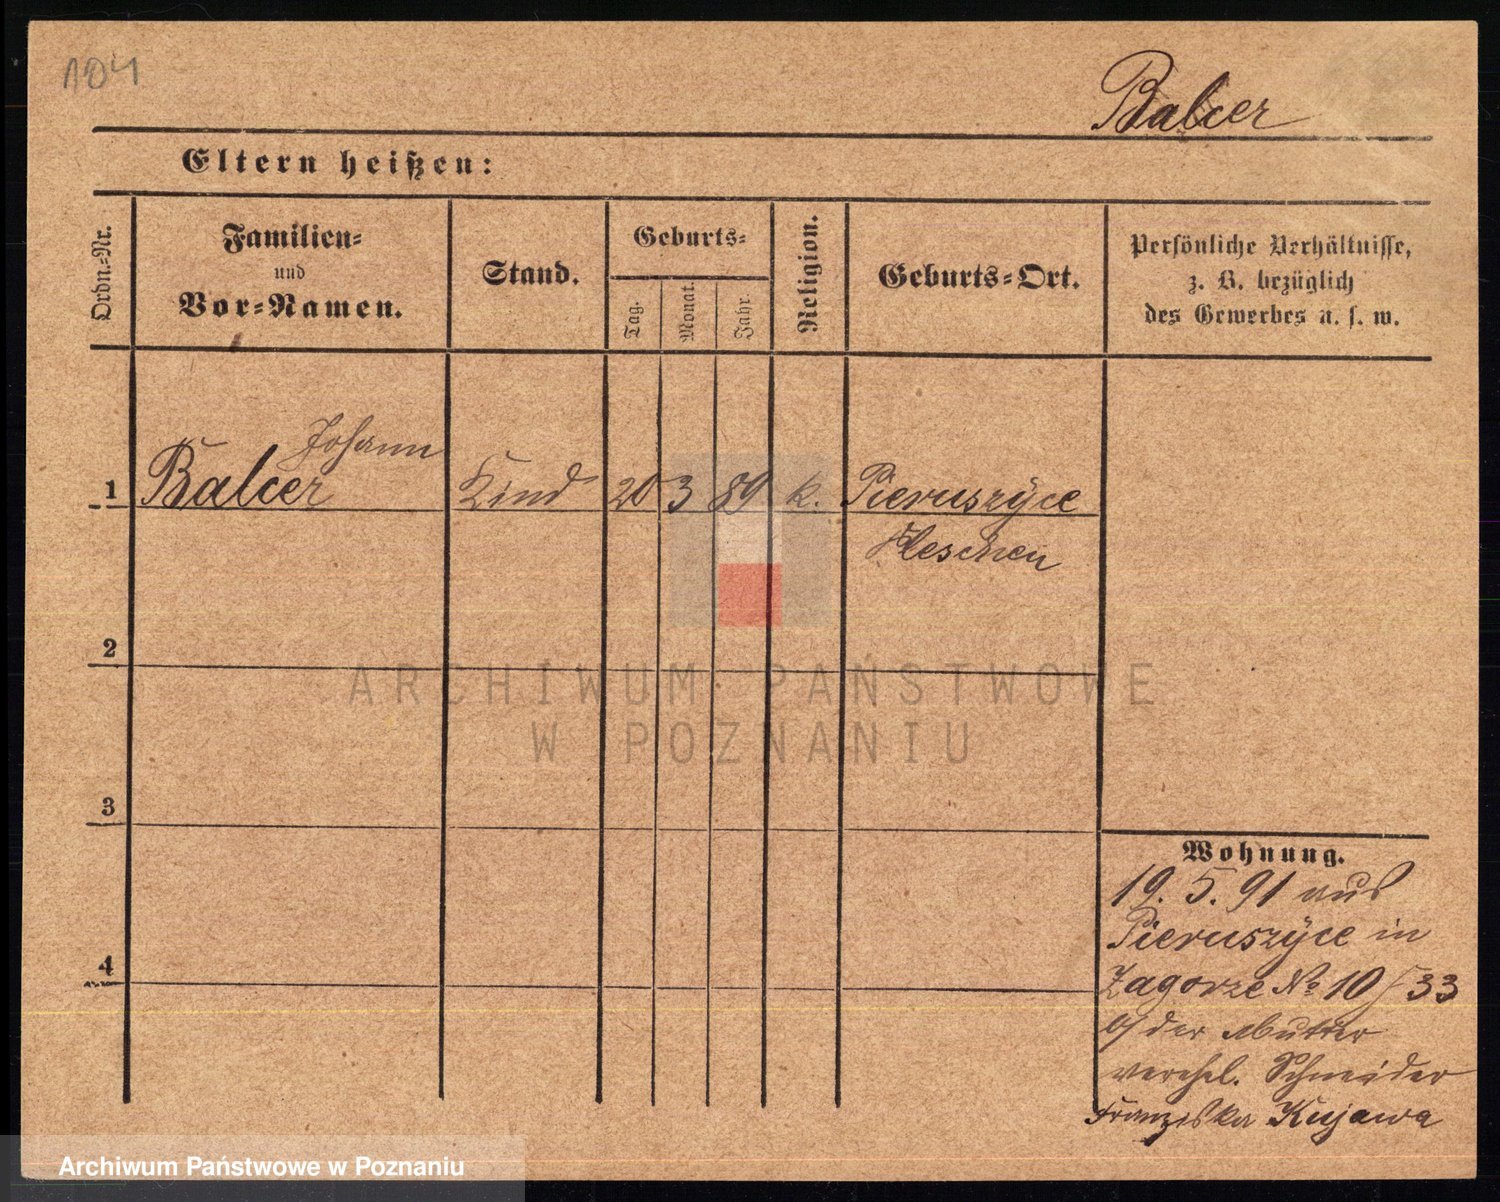 104
Balcer
Eltern heißen:
Ordn.-Nr.
Familien-
und
Vor-Namen.
Stand.
Geburts-
Tag.
Monat.
Jahr.
Religion.
Geburts-Ort.
Persönliche Verhältnisse,
z. B. bezüglich
des Gewerbes u. s. w.
Johann
1 Balcer Kind 20 3 89 k. Pieruszÿce
Pleschen
2
3
4
Wohnung.
19. 5. 91 aus
Pieruszÿce in
Zagorze No 10/33
b/ der Mutter
verehel. Schneider
Franziska Kujawa
ARCHIWUM PAŃSTWOWE
W POZNANIU
Archiwum Państwowe w Poznaniu